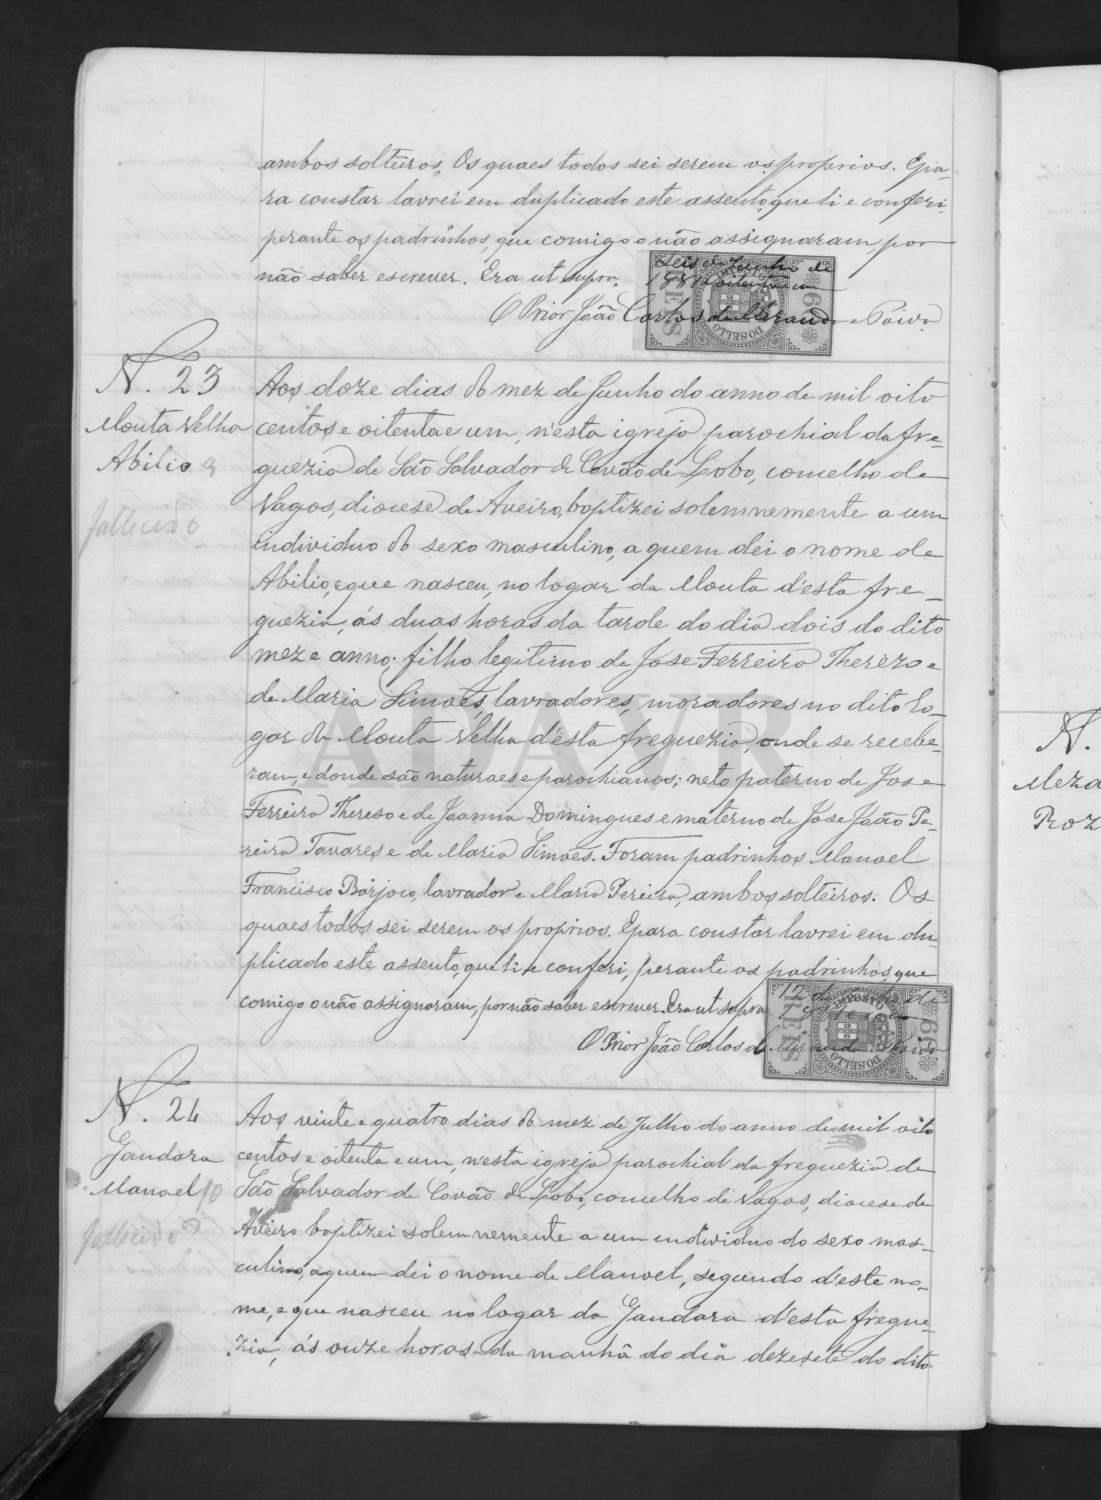 ambos solteiros, Os quaes todos sei serem os proprios. E pa-
ra constar lavrei em duplicado este assento, que li e conferi
perante os padrinhos, que comigo o não assignaram, por
não saber escrever. Era ut supra.
Seis de Junho de
1881
O Prior João Carlos de Miranda e Paiva
N. 23
Mouta Velha
Abilio 9
falleceu
Aos doze dias do mez de Junho do anno de mil oito
centos e oitenta e um, n'esta igreja parochial da fre-
guezia de São Salvador de Covão de Lobo, concelho de
Vagos, diocese de Aveiro, baptizei solemnemente a um
individuo do sexo masculino, a quem dei o nome de
Abilio, e que nasceu, no logar da Mouta d'esta fre-
guezia, ás duas horas da tarde do dia dois do dito
mez e anno; filho legitimo de José Ferreira Thereso e
de Maria Simões, lavradores, moradores no dito lo-
gar da Mouta Velha d'esta freguezia, onde se recebe-
ram, e donde são naturaes e parochianos; neto paterno de José
Ferreira Thereso e de Joanna Domingues e materno de José João Pe-
reira Tavares e de Maria Simões. Foram padrinhos Manoel
Francisco Barjoco, lavrador e Maria Pereira, ambos solteiros. Os
quaes todos sei serem os proprios. E para constar lavrei em du-
plicado este assento, que li e conferi, perante os padrinhos, que
comigo o não assignaram, por não saber escrever. Era ut supra
12 de Junho de
O Prior João Carlos de Miranda e Paiva
N. 24
Gandara
Manoel 10
falleceu
Aos vinte e quatro dias do mez de Julho do anno de mil oito
centos e oitenta e um, n'esta igreja parochial da freguezia de
São Salvador de Covão de Lobo, concelho de Vagos, diocese de
Aveiro baptizei solemnemente a um individuo do sexo mas-
culino, a quem dei o nome de Manoel, segundo d'este no-
me, e que nasceu no logar da Gandara d'esta fregue-
zia, ás onze horas da manhã do dia dezesete do dito
ADAVR
IMPOSTO DO SELLO
60 REIS
IMPOSTO DO SELLO
60 REIS
N.
Meza
Roz